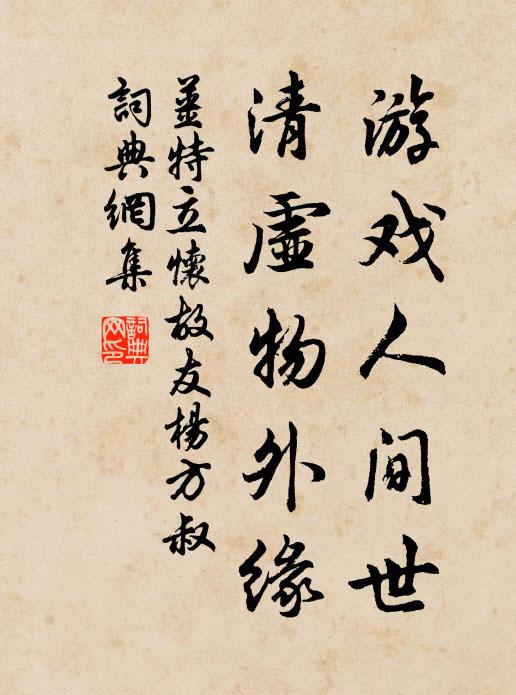 游戏人间世
清虚物外缘
姜特立懷故友楊方叔
詞典網集
詞典網印